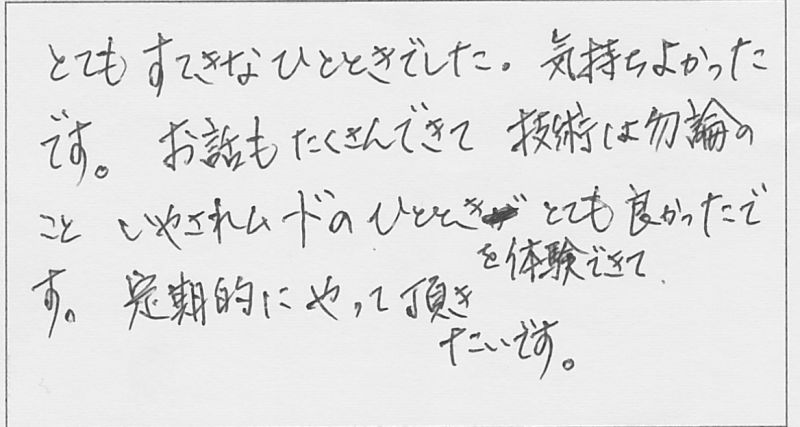 とてもすてきなひとときでした。気持ちよかった
です。お話もたくさんできて 技術は勿論の
こと いやされムードのひとときを体験できて とても良かったで
す。定期的にやって頂き
たいです。